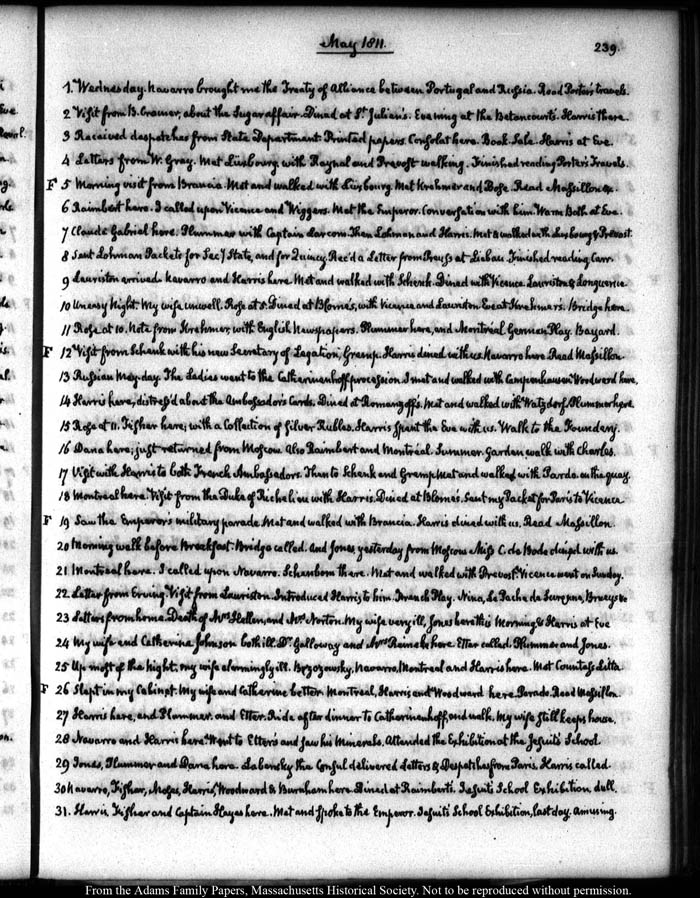 May 1811.
239.
1. Wednesday. Navarro brought me the Treaty of Alliance between Portugal and Russia. Read Porter's travels.
2 Visit from B. Cramer, about the Sugar affair. Dined at St. Julien's. Evening at the Betancourt's. Harris there.
3 Received despatches from State Department. Printed papers. Consolat here. Book Sale. Harris at Eve.
4 Letters from W. Gray. Met Luxbourg with Raynal and Prevost walking. Finished reading Porter's Travels.
F 5 Morning visit from Brancia. Met and walked with Luxbourg. Met Krehmer and Bose. Read Massillon &c.
6 Raimbert here. I called upon Vicence and Wiggers. Met the Emperor. Conversation with him. Warm Bath at Eve.
7 Claude Gabriel here. Plummer with Captain Larcom. Then Lohman and Harris. Met & walked with Luxbourg & Prevost.
8 Sent Lohman Packets for Secy. State, and for Quincy. Rec'd a Letter from Preuss at Liebau. Finished reading Carr.
9 Lauriston arrived. Navarro and Harris here. Met and walked with Schenk. Dined with Vicence. Lauriston & Longuerue
10 Uneasy Night. My wife unwell. Rose at 5. Dined at Blome's, with Vicence and Lauriston. Eve at Krehmer's. Bridge here.
11 Rose at 10. Note from Krehmer, with English Newspapers. Plummer here, and Montréal. German Play. Bayard.
F 12 Visit from Schenk with his new Secretary of Legation, Gremp. Harris dined with us. Navarro here. Read Massillon
13 Russian May-day. The Ladies went to the Catherinenhoff procession. I met and walked with Campenhausen. Woodward here.
14 Harris here, distress'd about the Ambassador's Cards. Dined at Romanzoff's. Met and walked with Watzdorf. Plummer here.
15 Rose at 11. Fisher here, with a Collection of Silver Rubles. Harris spent the Eve with us. Walk to the Foundery.
16 Dana here; just returned from Moscow. Also Raimbert and Montréal. Summer Garden walk with Charles.
17 Visit with Harris to both French Ambassadors. Then to Schenk and Gremp. Met and walked with Pardo on the quay.
18 Montreal here. Visit from the Duke of Richelieu with Harris. Dined at Blome's. Sent my Packet for Paris to Vicence
F 19 Saw the Emperor's military parade. Met and walked with Brancia. Harris dined with us. Read Massillon.
20 Morning walk before Breakfast. Bridge called. And Jones, yesterday from Moscow. Miss C. de Bode dined with us.
21 Montreal here. I called upon Navarro. Schenbom there. Met and walked with Prevost. Vicence went on Sunday.
22 Letter from Erving. Visit from Lauriston. Introduced Harris to him. French Play. Nina, Le Pacha de Suresne, Brueys &c
23 Letters from home. Death of Mrs Hellen, and Mrs Norton. My wife very ill, Jones here this Morning & Harris at Eve
24 My wife and Catherine Johnson both ill. Dr. Galloway and Mrs Raineke here. Etter called. Plummer and Jones.
25 Up most of the Night. My wife alarmingly ill. Brzozowsky, Navarro, Montreal and Harris here. Met Countess Litta
F 26 Slept in my Cabinet. My wife and Catherine better. Montreal, Harris and Woodward here. Parade. Read Massillon.
27 Harris here, and Plummer, and Etter. Ride after dinner to Catherinenhoff, and walk. My wife still keeps house.
28 Navarro and Harris here. Went to Etter's and saw his Minerals. Attended the Exhibition at the Jesuits School
29 Jones, Plummer and Dana here. Labensky the Consul delivered Letters & Despatches from Paris. Harris called
30 Navarro, Fisher, Moses, Harris, Woodward & Burnham here. Dined at Raimbert's. Jesuits School Exhibition, dull.
31. Harris, Fisher and Captain Hayes here. Met and spoke to the Emperor. Jesuits School Exhibition, last day. Amusing.
From the Adams Family Papers, Massachusetts Historical Society. Not to be reproduced without permission.